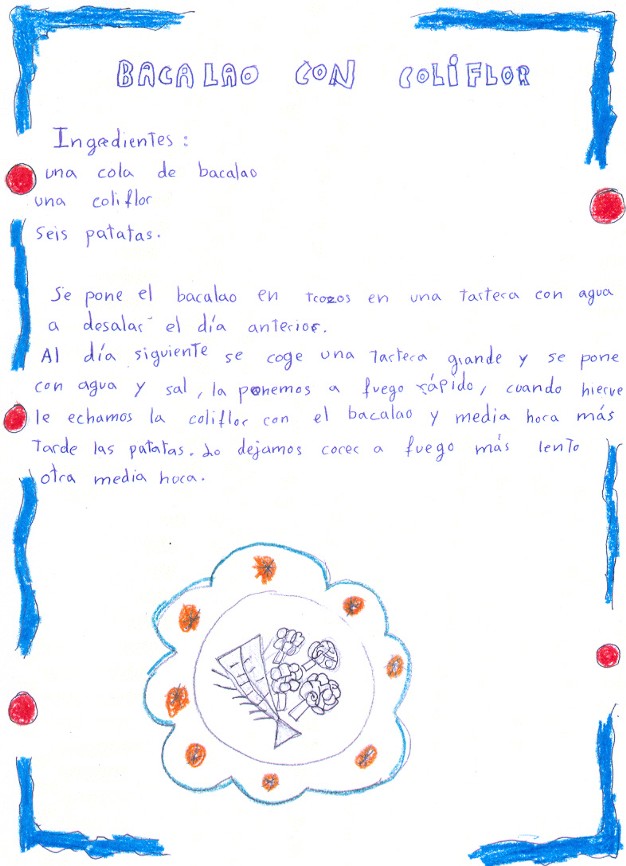 BACALAO CON COLIFLOR
Ingredientes:
una cola de bacalao
una coliflor
seis patatas.
Se pone el bacalao en trozos en una tartera con agua
a desalar el día anterior.
Al día siguiente se coge una tartera grande y se pone
con agua y sal, la ponemos a fuego rápido, cuando hierve
le echamos la coliflor con el bacalao y media hora más
tarde las patatas. Lo dejamos cocer a fuego más lento
otra media hora.